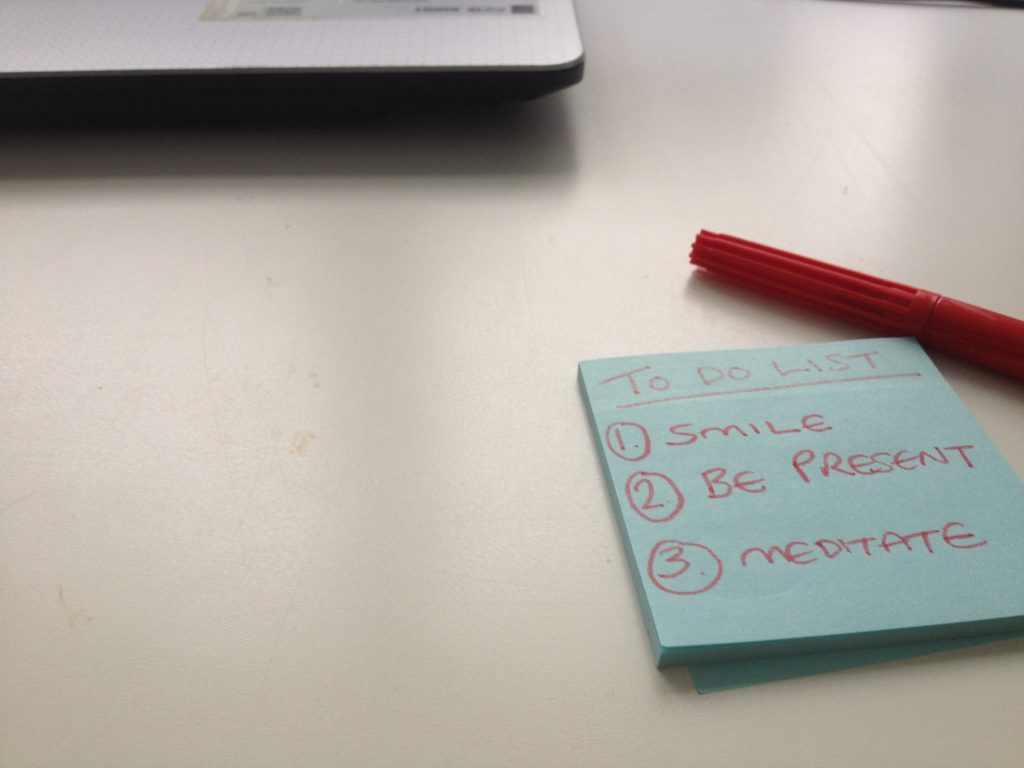 TO DO LIST
1. SMILE
2. BE PRESENT
3. MEDITATE